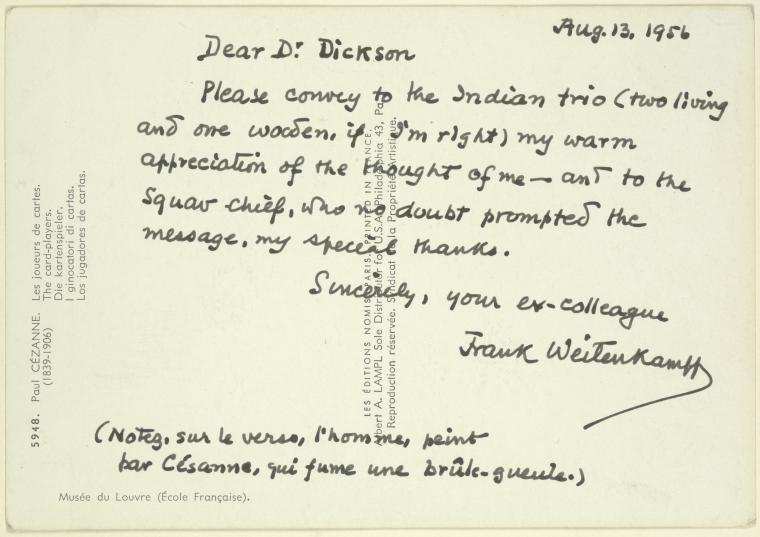 Aug. 13, 1956
Dear Dr Dickson
Please convey to the Indian trio (two living
and one wooden, if I'm right) my warm
appreciation of the thought of me — and to the
Squaw chief, who no doubt prompted the
message, my special thanks.
Sincerely, your ex-colleague
Frank Weitenkampf
(Notez, sur le verso, l'homme, peint
par Césanne, qui fume une brûle-gueule.)
Musée du Louvre (École Française).
5948. Paul CÉZANNE. Les joueurs de cartes.
(1839-1906) The card-players.
Die kartenspieler.
I ginocatori di cartas.
Los jugadores de cartas.
LES ÉDITIONS NOMIS, PARIS. PRINTED IN FRANCE.
Albert A. LAMPL Sole Distributor for U.S.A. Philadelphia 43, Pa.
Reproduction réservée. Syndicat de la Propriété Artistique.